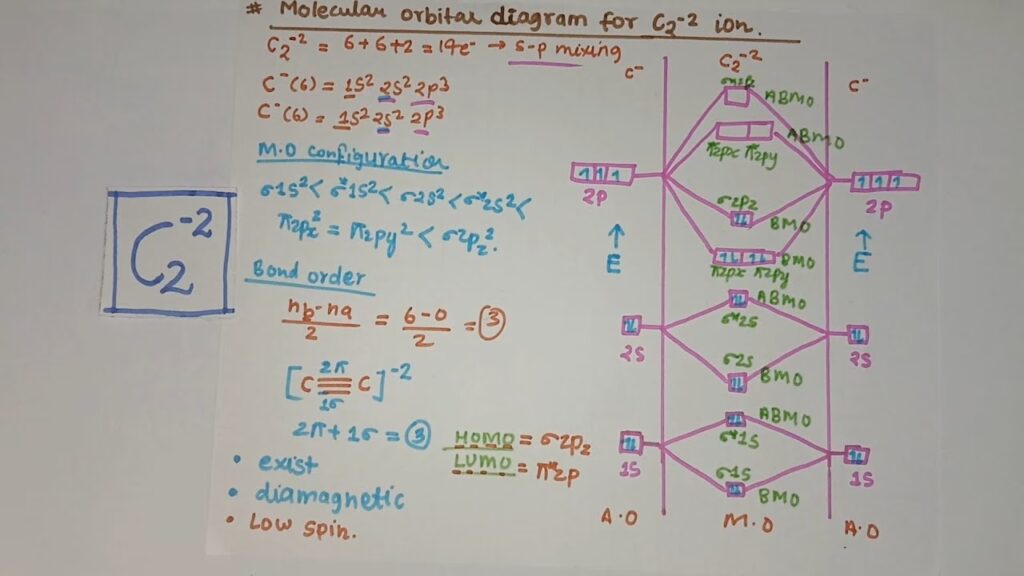 * Molecular orbital diagram for C₂⁻² ion.
C₂⁻² = 6+6+2 = 14e⁻ → s-p mixing
C⁻(6) = 1S² 2S² 2p³
C⁻(6) = 1S² 2S² 2p³
M.O configuration
σ1S² < σ*1S² < σ2S² < σ*2S² <
π2px² = π2py² < σ2pz².
Bond order
nb-na/2 = 6-0/2 = 3
[C≡C]⁻²
2π
1σ
2π+1σ = 3
• exist
• diamagnetic
• Low spin.
HOMO = σ2pz
LUMO = π*2p
C₂⁻²
C⁻
C₂⁻²
C⁻
ABMO
ABMO
π*2px π*2py
2p
2p
σ2pz
BMO
E
E
BMO
π2px π2py
ABMO
σ*2S
2S
2S
σ2S
BMO
ABMO
σ*1S
1S
1S
σ1S
BMO
A.O
M.O
A.O